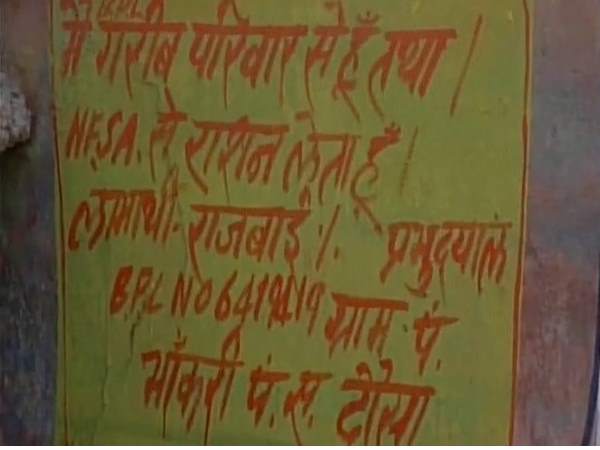 BPL
मैं गरीब परिवार से हूँ तथा ।
NFSA. से राशन लेता हूँ ।
लाभार्थी:- राजबाई ।. प्रभुदयाल
BPL NO ग्राम. पं.
भाँकरी पं. स. दौसा